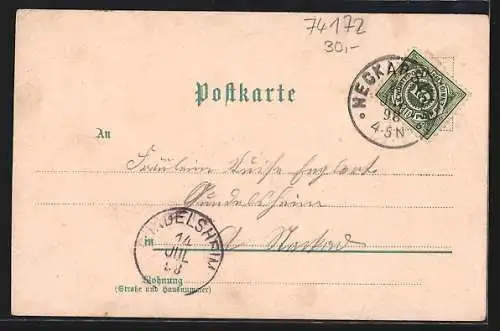 74172
30,-
Postkarte
NECKARS
98
4-5N
5
An
Fräulein Luise Englert
Gundelsheim
in a. Neckar
NDELSHEIM
14
JUL
98
Wohnung
(Straße und Hausnummer)